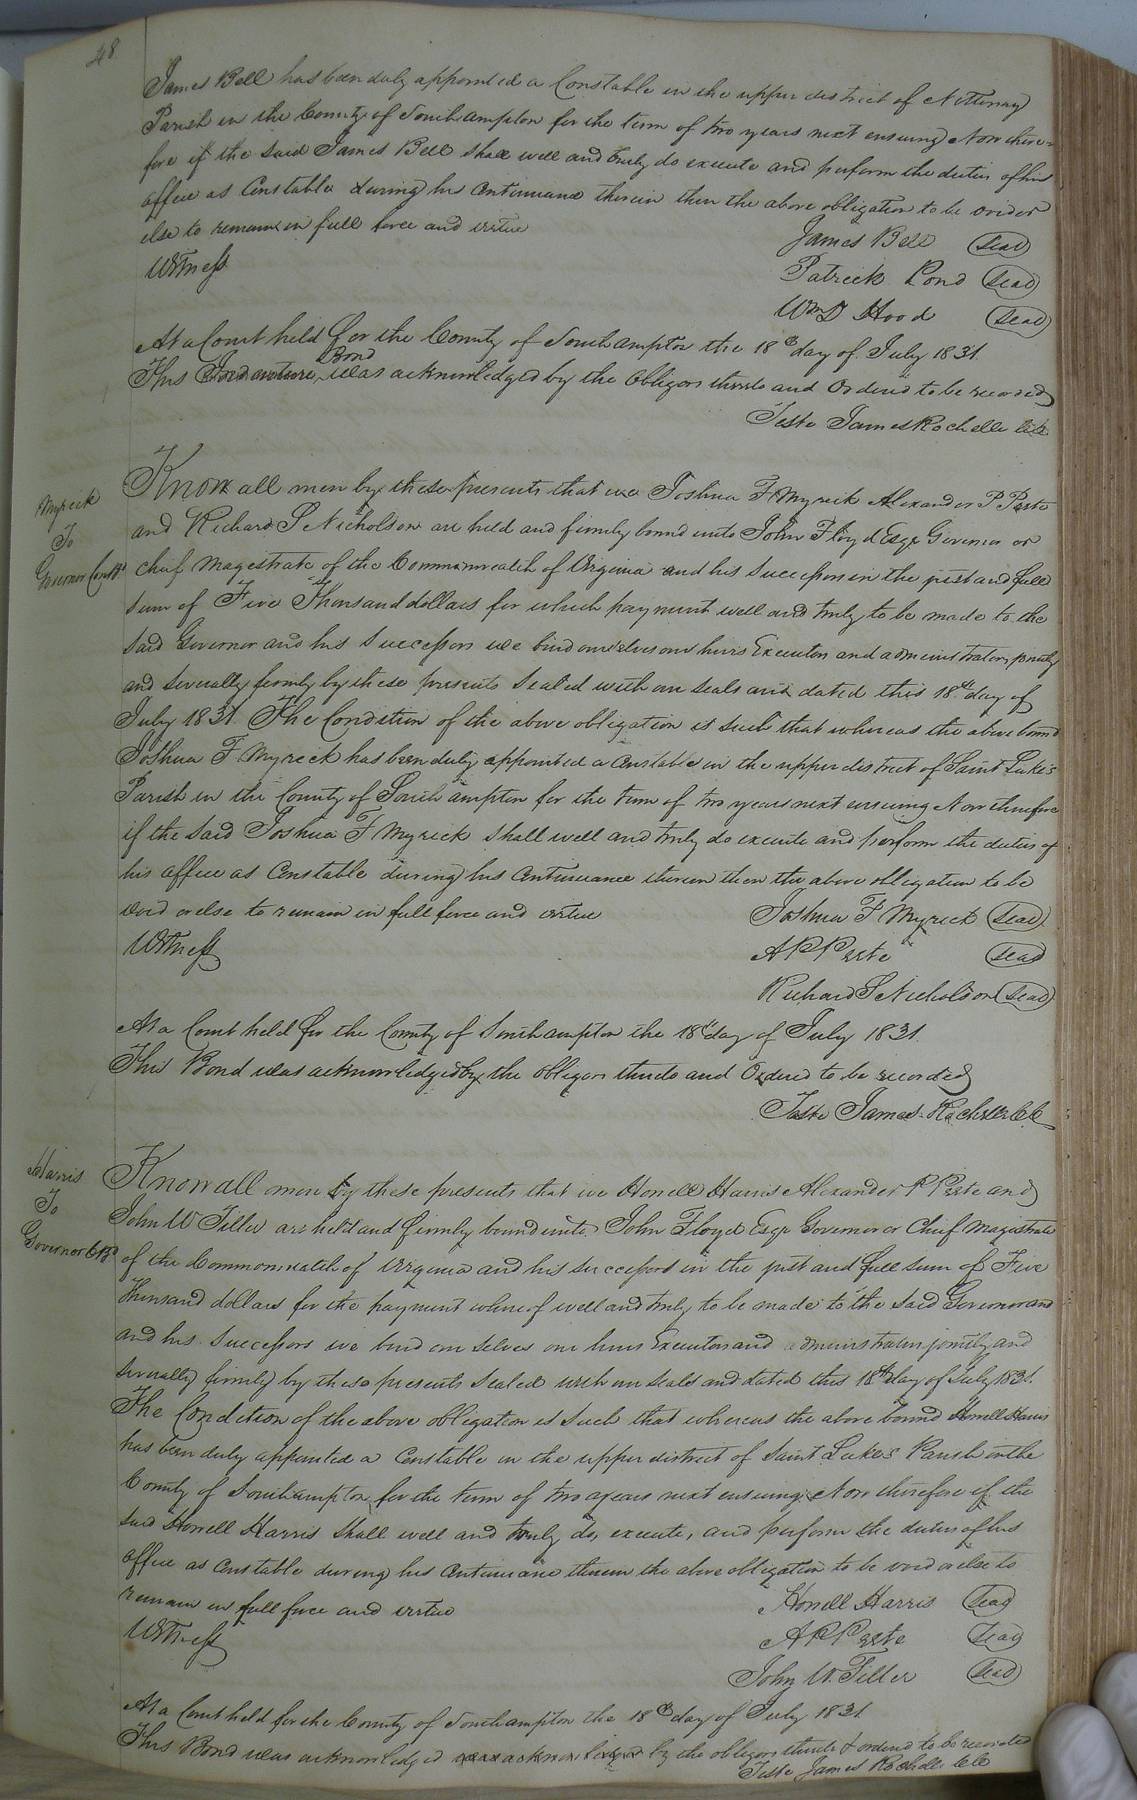 48
James Bell has been duly appointed a Constable in the upper district of Nottoway
Parish in the County of Southampton for the term of two years next ensuing Now there=
fore if the said James Bell shall well and truly do execute and perform the duties of his
office as Constable during his Continuance therein then the above obligation to be void or
else to remain in full force and virtue
James Bell Seal
Witness
Patrick Pond Seal
Wm D Hood Seal
At a Court held for the County of Southampton the 18th day of July 1831.
This Indenture Bond was acknowledged by the Obligors thereto and Ordered to be recorded
Teste James Rochelle Clk
Myrick
To
Governor Const Bd
Know all men by these presents that we Joshua F Myrick Alexander P Peete
and Richard S Nicholson are held and firmly bound unto John Floyd Esqr Governor or
chief Magestrate of the Commonwealth of Virginia and his Successors in the just and full
sum of Five Thousand dollars for which payment well and truly to be made to the
said Governor and his Successors we bind ourselves our heirs Executors and administrators jointly
and severally firmly by these presents Sealed with our seals and dated this 18th day of
July 1831. The Condition of the above obligation is such that whereas the above bound
Joshua F Myrick has been duly appointed a Constable in the upper district of Saint Luke's
Parish in the County of Southampton for the term of two years next ensuing Now therefore
if the said Joshua F Myrick shall well and truly do execute and perform the duties of
his office as Constable during his Continuance therein then the above obligation to be
void or else to remain in full force and virtue
Joshua F Myrick Seal
Witness
A P Peete Seal
Richard S Nicholson Seal
At a Court held for the County of Southampton the 18th day of July 1831.
This Bond was acknowledged by the obligors thereto and Ordered to be recorded
Teste James Rochelle CC
Harris
To
Governor C Bd
Know all men by these presents that we Howell Harris Alexander P Peete and
John W Tiller are held and firmly bound unto John Floyd Esqr Governor or Chief Magistrate
of the Commonwealth of Virginia and his successors in the just and full sum of Five
Thousand dollars for the payment whereof well and truly to be made to the said Governor and
and his Successors we bind our selves our heirs Executors and administrators jointly and
severally firmly by these presents Sealed with our seals and dated this 18th day of July 1831.
The Condition of the above obligation is such that whereas the above bound Howell Harris
has been duly appointed a Constable in the upper district of Saint Lukes Parish in the
County of Southampton for the term of two years next ensuing Now therefore if the
said Howell Harris shall well and truly do, execute, and perform the duties of his
office as Constable during his Continuance therein the above obligation to be void or else to
remain in full force and virtue
Howell Harris Seal
Witness
A P Peete Seal
John W. Tiller Seal
At a Court held for the County of Southampton the 18th day of July 1831.
This Bond was acknowledged was acknowledged by the obligors thereto & ordered to be recorded
Teste James Rochelle CC